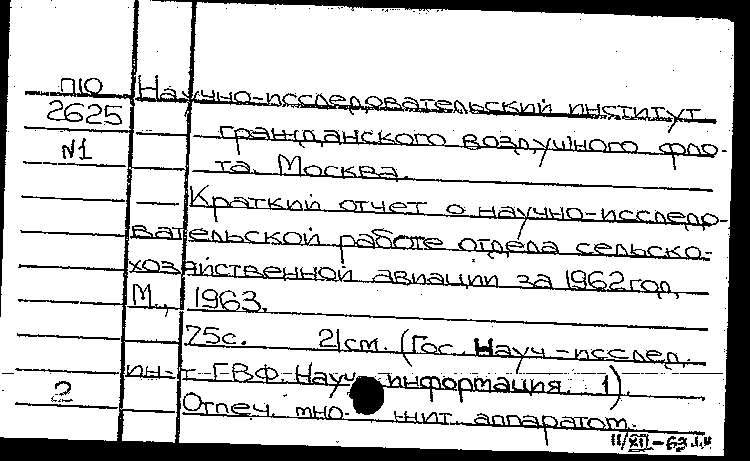 П10 Научно-исследовательский институт
2625
гражданского воздушного фло-
№1
та. Москва.
Краткий отчет о научно-исследо-
вательской работе отдела сельско-
хозяйственной авиации за 1962 год.
М., 1963.
75с. 21см. (Гос. Науч-исслед.
ин-т ГВФ. Науч. информация. 1).
2
Отпеч. мно- жит. аппаратом.
11/XII-63